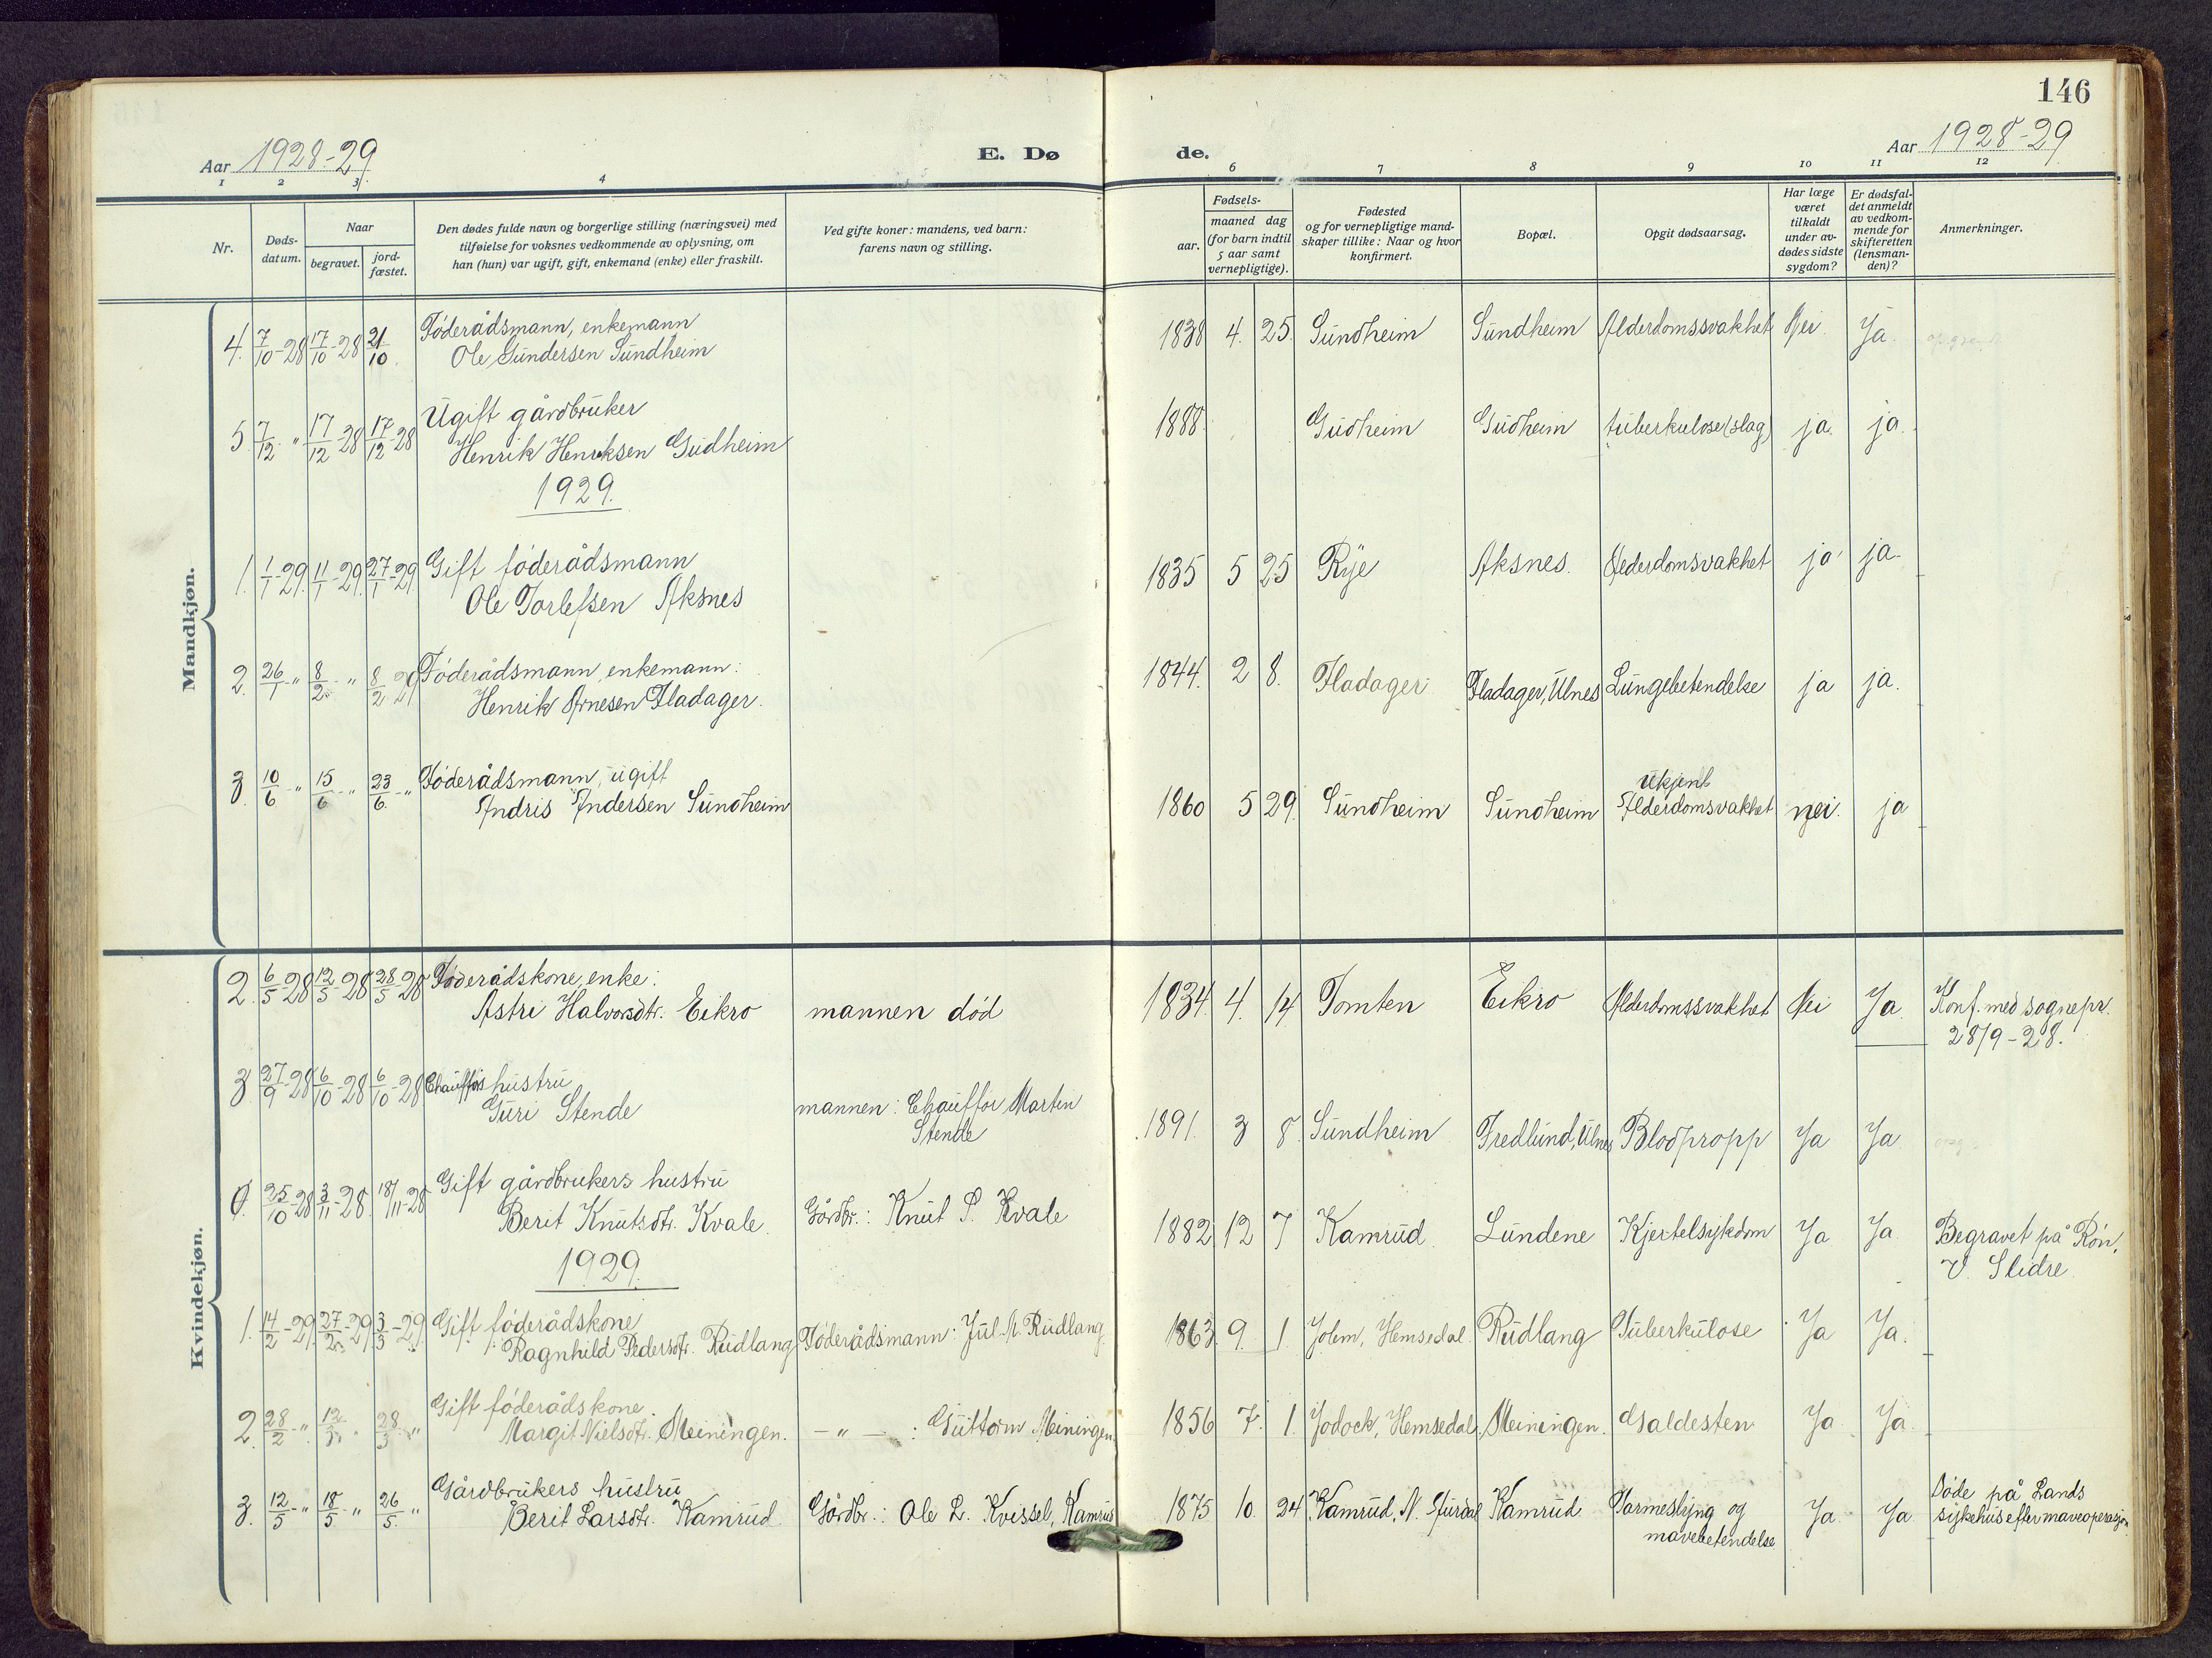 146
Aar 1928-29
E. Dø de.
Aar 1928-29
1 2 3 4 6 7 8 9 10 11 12
Nr.
Døds-
datum.
Naar
begravet.
jord-
fæstet.
Den dødes fulde navn og borgerlige stilling (næringsvei) med
tilføielse for voksnes vedkommende av oplysning, om
han (hun) var ugift, gift, enkemand (enke) eller fraskilt.
Ved gifte koner: mandens, ved barn:
farens navn og stilling.
Fødsels-
aar.
maaned dag
(for barn indtil
5 aar samt
vernepligtige).
Fødested
og for vernepligtige mand-
skaper tillike: Naar og hvor
konfirmert.
Bopæl.
Opgit dødsaarsag.
Har læge
været
tilkaldt
under av-
dødes sidste
sygdom?
Er dødsfal-
det anmeldt
av vedkom-
mende for
skifteretten
(lensman-
den)?
Anmerkninger.
Mandkjøn.
4. 7/10-28 17/10-28 21/10. Föderådsmann, enkemann
Ole Gundersen Sundheim
1838 4. 25. Sundheim Sundheim Alderdomssvakhet Nei. Ja.
5 7/12 " 17/12-28 17/12-28 Ugift gårdbruker
Henrik Henriksen Gudheim
1888. Gudheim Gudheim tuberkulose (slag) ja. ja.
1929.
1. 1/1-29. 11/1-29. 27/1-29 Gift föderådsmann
Ole Torlefsen Aksnes
1835 5 25 Rye Aksnes. Alderdomsvakhet ja ja.
2. 26/1-" 8/2-" 8/2 29 Föderådsmann, enkemann:
Henrik Arnesen Fladager.
1844. 2 8. Fladager Fladager, Ulnes Lungebetendelse ja ja.
3. 10/6-" 15/6-" 23/6-" Föderådsmann, ugift
Andris Andersen Sundheim
1860 5 29. Sundheim Sundheim Ukjent
Alderdomsvakhet nei. ja
Kvindekjøn.
2. 6/5-28 12/5-28 28/5-28 Föderådskone, enke:
Astri Halvorsdtr. Eikro mannen död
1834. 4. 14 Tomten Eikro Alderdomssvakhet Nei Ja. Konf. med sognepr.
28/9-28.
3. 27/9-28 6/10-28 6/10-28 Chaufförs hustru
Guri Stende mannen: Chaufför Marten
Stende
1891. 3 8. Sundheim Fredlund, Ulnes Blodpropp Ja Ja.
25/10-28 3/11-28. 18/11-28 Gift gårdbrukers hustru
Berit Knutsdtr. Kvale. Gårdbr.: Knut P. Kvale
1882 12 7 Kamrud Lundene Kjertelsykdom Ja Ja Begravet på Rön,
V. Slidre.
1929.
1. 14/2-29. 27/2-29. 3/3-29 Gift föderådskone
Ragnhild Pedersdtr. Rudlang Föderådsmann: Jul. N. Rudlang
1863. 9. 1. Hemsedal Rudlang Tuberkulose Ja Ja.
2. 28/2-" 12/3-" 28/3 " Gift föderådskone.
Margit Nielsdtr. Meiningen. -"-: Guttorm Meiningen.
1856 7. 1. Hemsedal, Meiningen. Galdesten Ja Ja.
3. 12/5-" 18/5-" 26/5. " Gårdbrukers hustru
Berit Larsdtr. Kamrud. Gårdbr.: Ole L. Kvissel, Kamrud
1875 10 24 Kamrud, N. Aurdal Kamrud Tarmeslyng og
mavebetendelse Ja Ja Döde på Lands
sykehus efter maveoperasjon